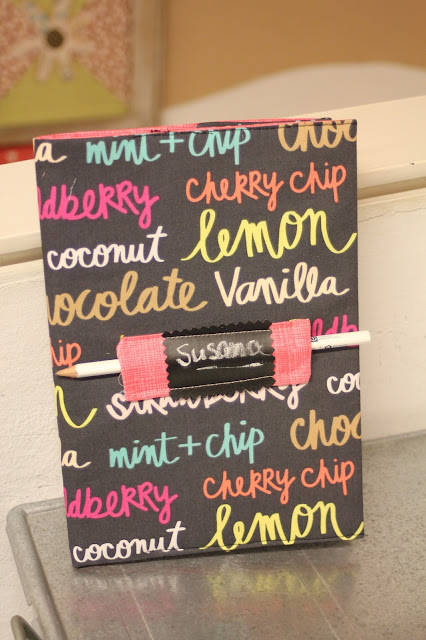 a mint + chip choc
ldberry cherry chip
coconut lemon
hocolate Vanilla
hip ldb
Susana
n strawberry coc
a mint + chip choc
ldberry cherry chip
coconut lemon